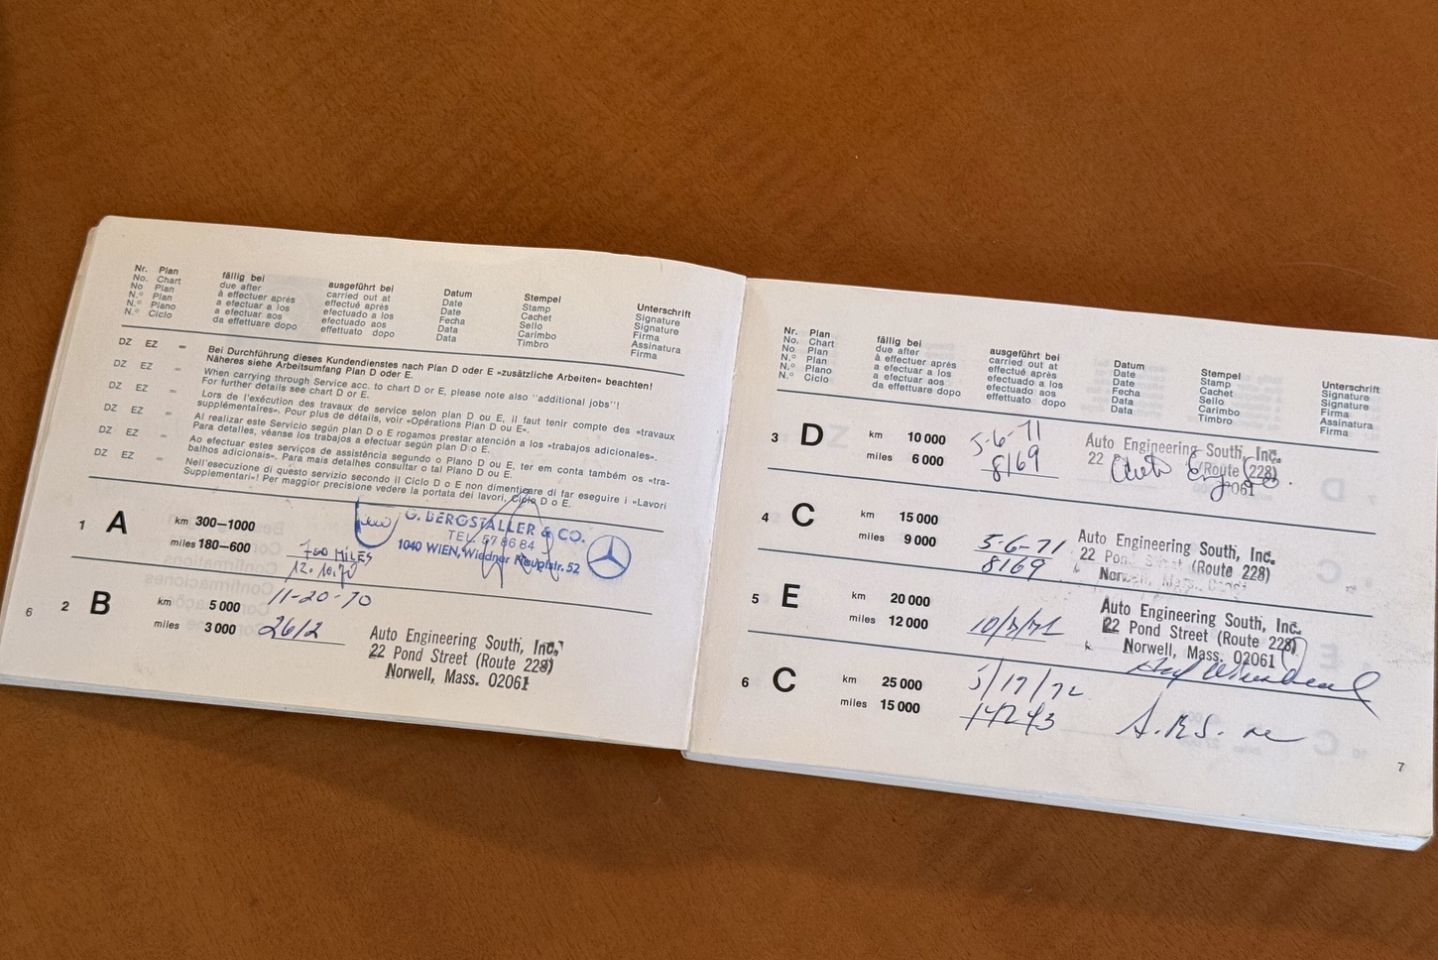 Nr. Plan
No. Chart
No Plan
N.º Plan
N.º Plano
N.º Ciclo
fällig bei
due after
à effectuer après
a efectuar a los
a efectuar aos
da effettuare dopo
ausgeführt bei
carried out at
effectué après
efectuado a los
efectuado aos
effettuato dopo
Datum
Date
Date
Fecha
Data
Data
Stempel
Stamp
Cachet
Sello
Carimbo
Timbro
Unterschrift
Signature
Signature
Firma
Assinatura
Firma
DZ EZ – Bei Durchführung dieses Kundendienstes nach Plan D oder E »zusätzliche Arbeiten« beachten!
Näheres siehe Arbeitsumfang Plan D oder E.
DZ EZ – When carrying through Service acc. to chart D or E, please note also "additional jobs"!
For further details see chart D or E.
DZ EZ – Lors de l'exécution des travaux de service selon plan D ou E, il faut tenir compte des «travaux
supplémentaires». Pour plus de détails, voir «Opérations Plan D ou E».
DZ EZ – Al realizar este Servicio según plan D o E rogamos prestar atención a los «trabajos adicionales».
Para detalles, véanse los trabajos a efectuar según plan D o E.
DZ EZ – Ao efectuar estes serviços de assistência segundo o Plano D ou E, ter em conta também os «tra-
balhos adicionais». Para mais detalhes consultar o tal Plano D ou E.
DZ EZ – Nell'esecuzione di questo servizio secondo il Ciclo D o E non dimenticare di far eseguire i «Lavori
Supplementari»! Per maggior precisione vedere la portata dei lavori, Ciclo D o E.
1 A km 300–1000
miles 180–600
700 MILES
12.10.70
G. BERGSTALLER & CO.
TEL. 57 86 84
1040 WIEN, Wiedner Hauptstr. 52
2 B km 5 000
miles 3 000
11-20-70
2612
Auto Engineering South, Inc.
22 Pond Street (Route 228)
Norwell, Mass. 02061
6
Nr. Plan
No. Chart
No Plan
N.º Plan
N.º Plano
N.º Ciclo
fällig bei
due after
à effectuer après
a efectuar a los
a efectuar aos
da effettuare dopo
ausgeführt bei
carried out at
effectué après
efectuado a los
efectuado aos
effettuato dopo
Datum
Date
Date
Fecha
Data
Data
Stempel
Stamp
Cachet
Sello
Carimbo
Timbro
Unterschrift
Signature
Signature
Firma
Assinatura
Firma
3 D km 10 000
miles 6 000
5-6-71
8169
Auto Engineering South, Inc.
22 (Route 228)
02061
Auto Eng
4 C km 15 000
miles 9 000
5-6-71
8169
Auto Engineering South, Inc.
22 Pond Street (Route 228)
Norwell, Mass.
5 E km 20 000
miles 12 000
Auto Engineering South, Inc.
22 Pond Street (Route 228)
Norwell, Mass. 02061
6 C km 25 000
miles 15 000
5/17/72
14243
7